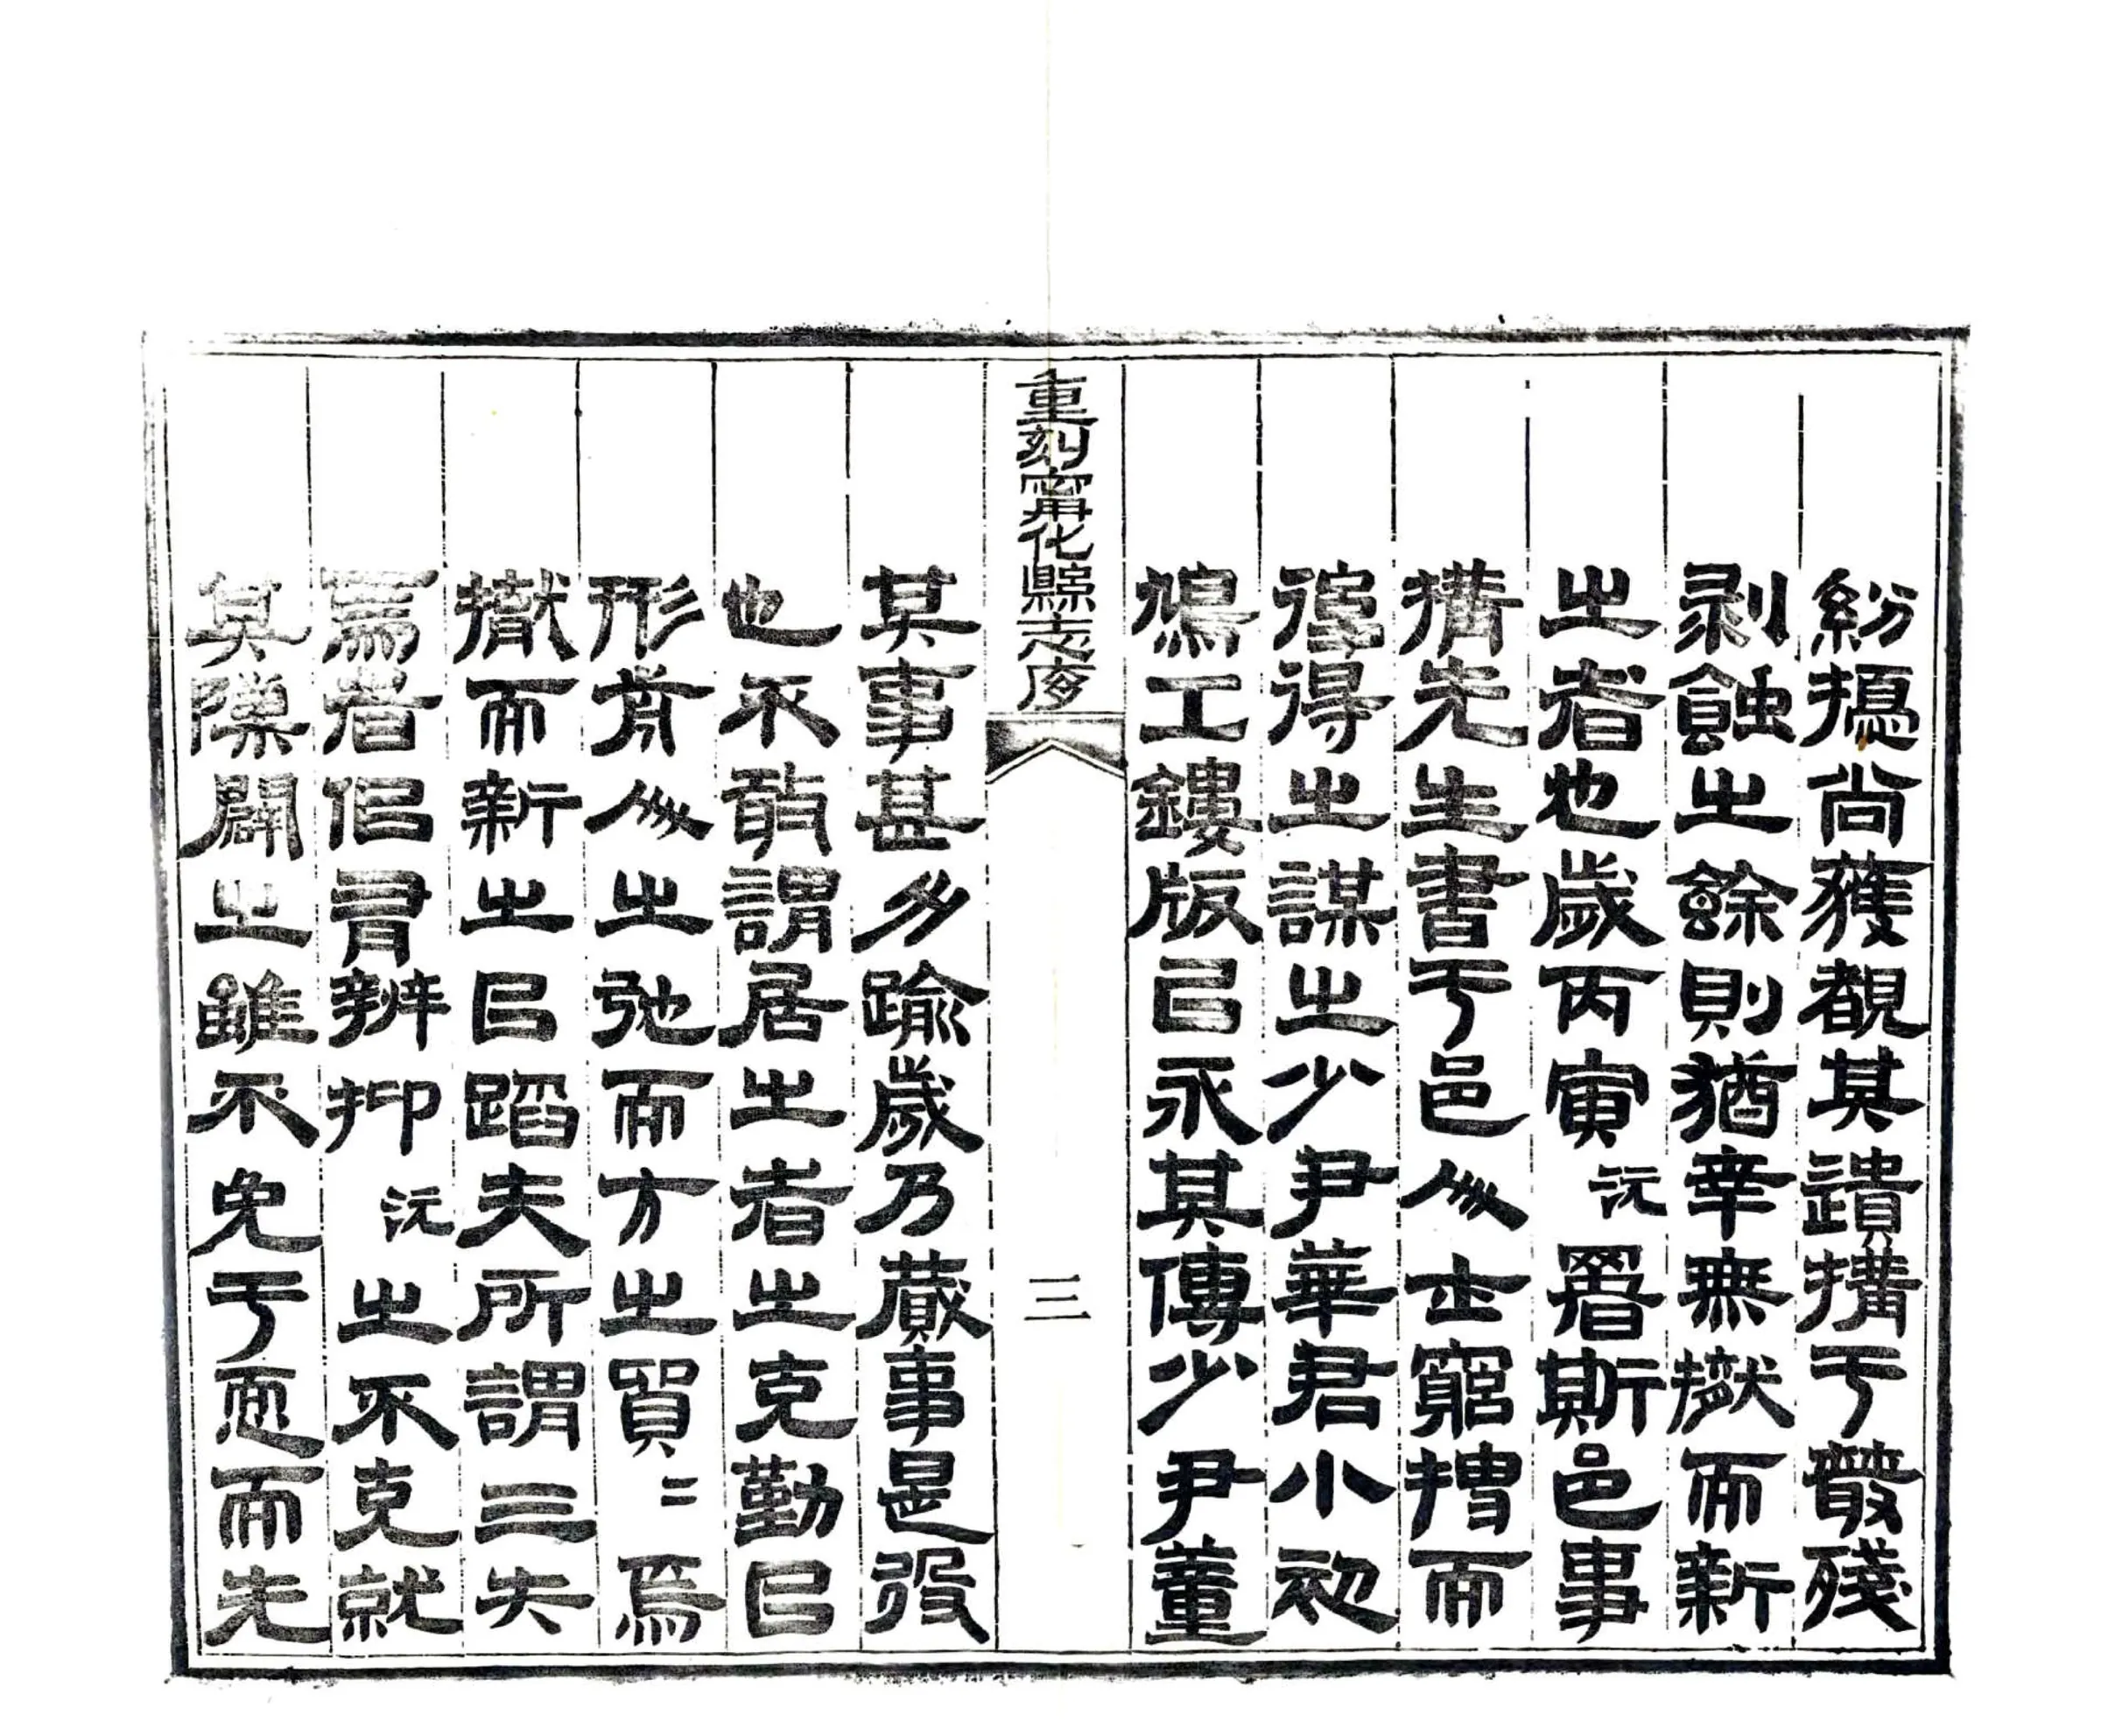 紛擾尚獲覩其遺搆于叢殘
剥蝕之餘則猶幸無撤而新
之者也歲丙寅沅署斯邑事
搆先生書于邑人士窮搜而
得之謀之少尹華君小初
鳩工鏤版㠯永其傳少尹董
重刻甯化縣志序
三
其事甚力踰歲乃蕆事是役
也不敢謂居之者之克勤㠯
形前人之弛而方之賢二焉
撤而新之㠯蹈夫所謂三失
焉者但胥辨抑沅之不克就
其隙闢之雖不免于而先